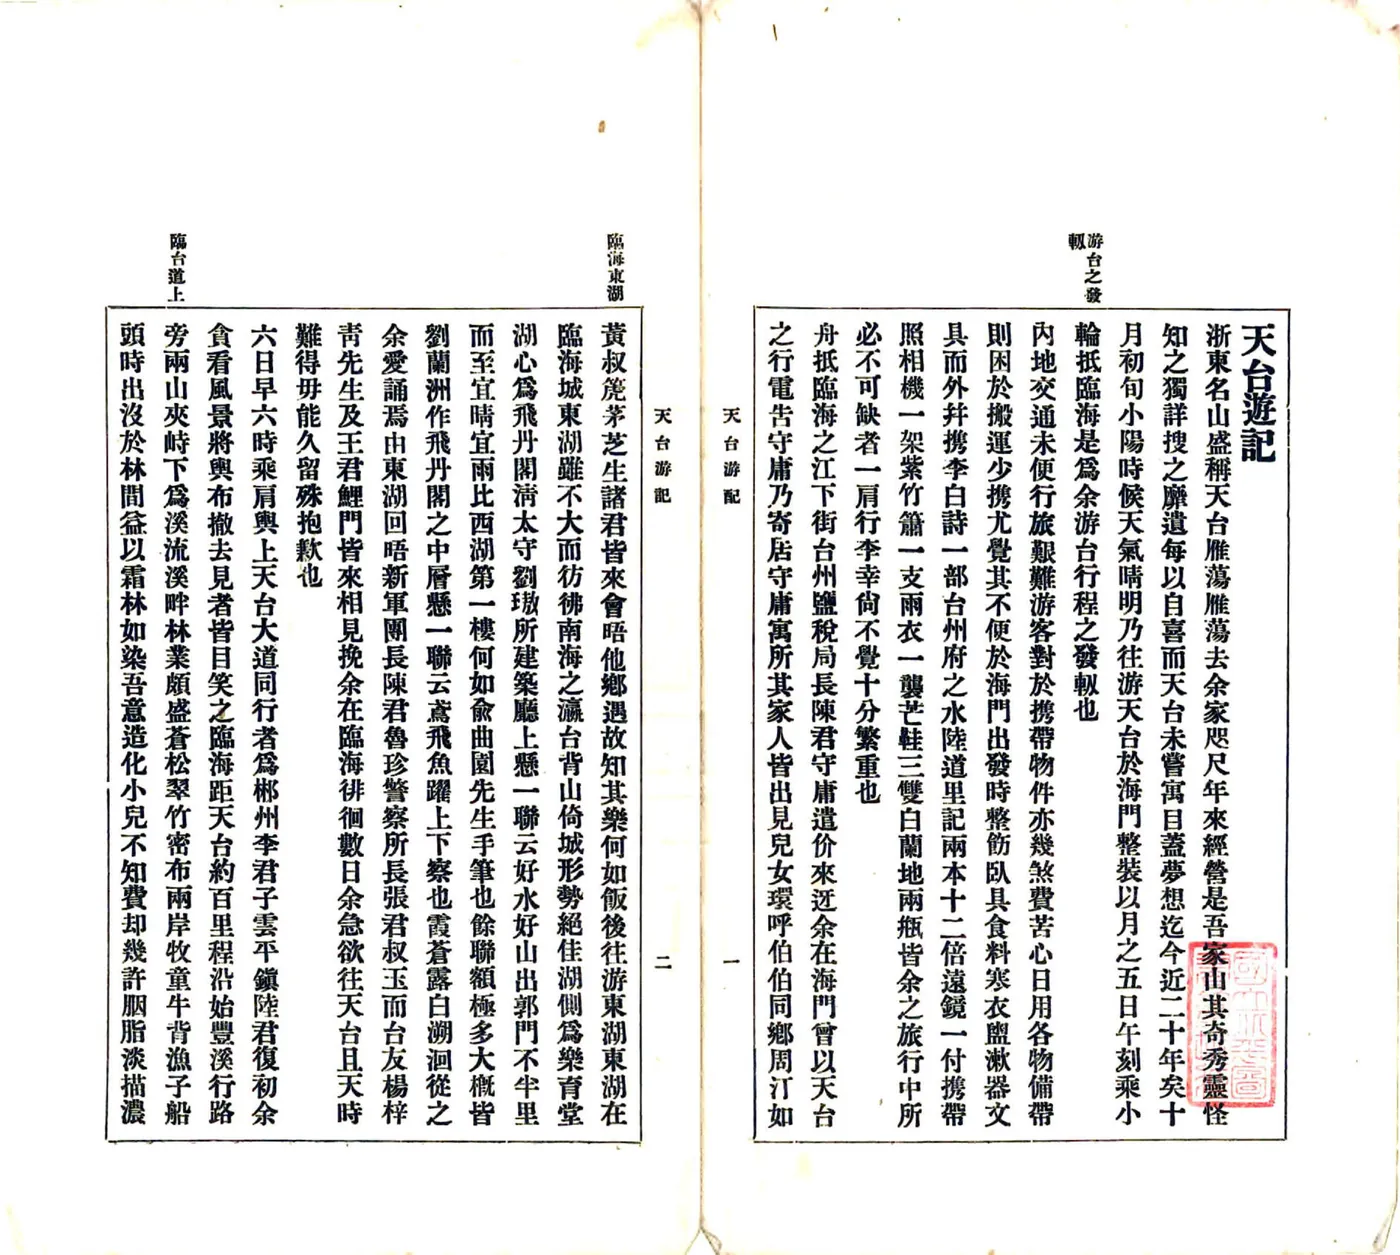 天台遊記
游台之發
軔
浙東名山盛稱天台雁蕩雁蕩去余家咫尺年來經營是吾家山其奇秀靈怪
知之獨詳搜之靡遺每以自喜而天台未嘗寓目蓋夢想迄今近二十年矣十
月初旬小陽時候天氣晴明乃往游天台於海門整裝以月之五日午刻乘小
輪抵臨海是爲余游台行程之發軔也
內地交通未便行旅艱難游客對於携帶物件亦幾煞費苦心日用各物備帶
則困於搬運少携尤覺其不便於海門出發時整飭臥具食料寒衣盥漱器文
具而外幷携李白詩一部台州府之水陸道里記兩本十二倍遠鏡一付携帶
照相機一架紫竹簫一支雨衣一襲芒鞋三雙白蘭地兩瓶皆余之旅行中所
必不可缺者一肩行李幸尙不覺十分繁重也
舟抵臨海之江下街台州鹽稅局長陳君守庸遣价來迓余在海門曾以天台
之行電告守庸乃寄居守庸寓所其家人皆出見兒女環呼伯伯同鄉周汀如
天台游記
一
天台游記
二
臨海東湖
黃叔箎茅芝生諸君皆來會晤他鄉遇故知其樂何如飯後往游東湖東湖在
臨海城東湖雖不大而彷彿南海之瀛台背山倚城形勢絕佳湖側爲樂育堂
湖心爲飛丹閣淸太守劉璈所建築廳上懸一聯云好水好山出郭門不半里
而至宜晴宜雨比西湖第一樓何如兪曲園先生手筆也餘聯額極多大槪皆
劉蘭洲作飛丹閣之中層懸一聯云鳶飛魚躍上下察也霞蒼露白溯洄從之
余愛誦焉由東湖回晤新軍團長陳君魯珍警察所長張君叔玉而台友楊梓
靑先生及王君鯉門皆來相見挽余在臨海徘徊數日余急欲往天台且天時
難得毋能久留殊抱歉也
臨台道上
六日早六時乘肩輿上天台大道同行者爲郴州李君子雲平鎭陸君復初余
貪看風景將輿布撤去見者皆目笑之臨海距天台約百里程沿始豐溪行路
旁兩山夾峙下爲溪流溪畔林業頗盛蒼松翠竹密布兩岸牧童牛背漁子船
頭時出沒於林間益以霜林如染吾意造化小兒不知費却幾許胭脂淡描濃